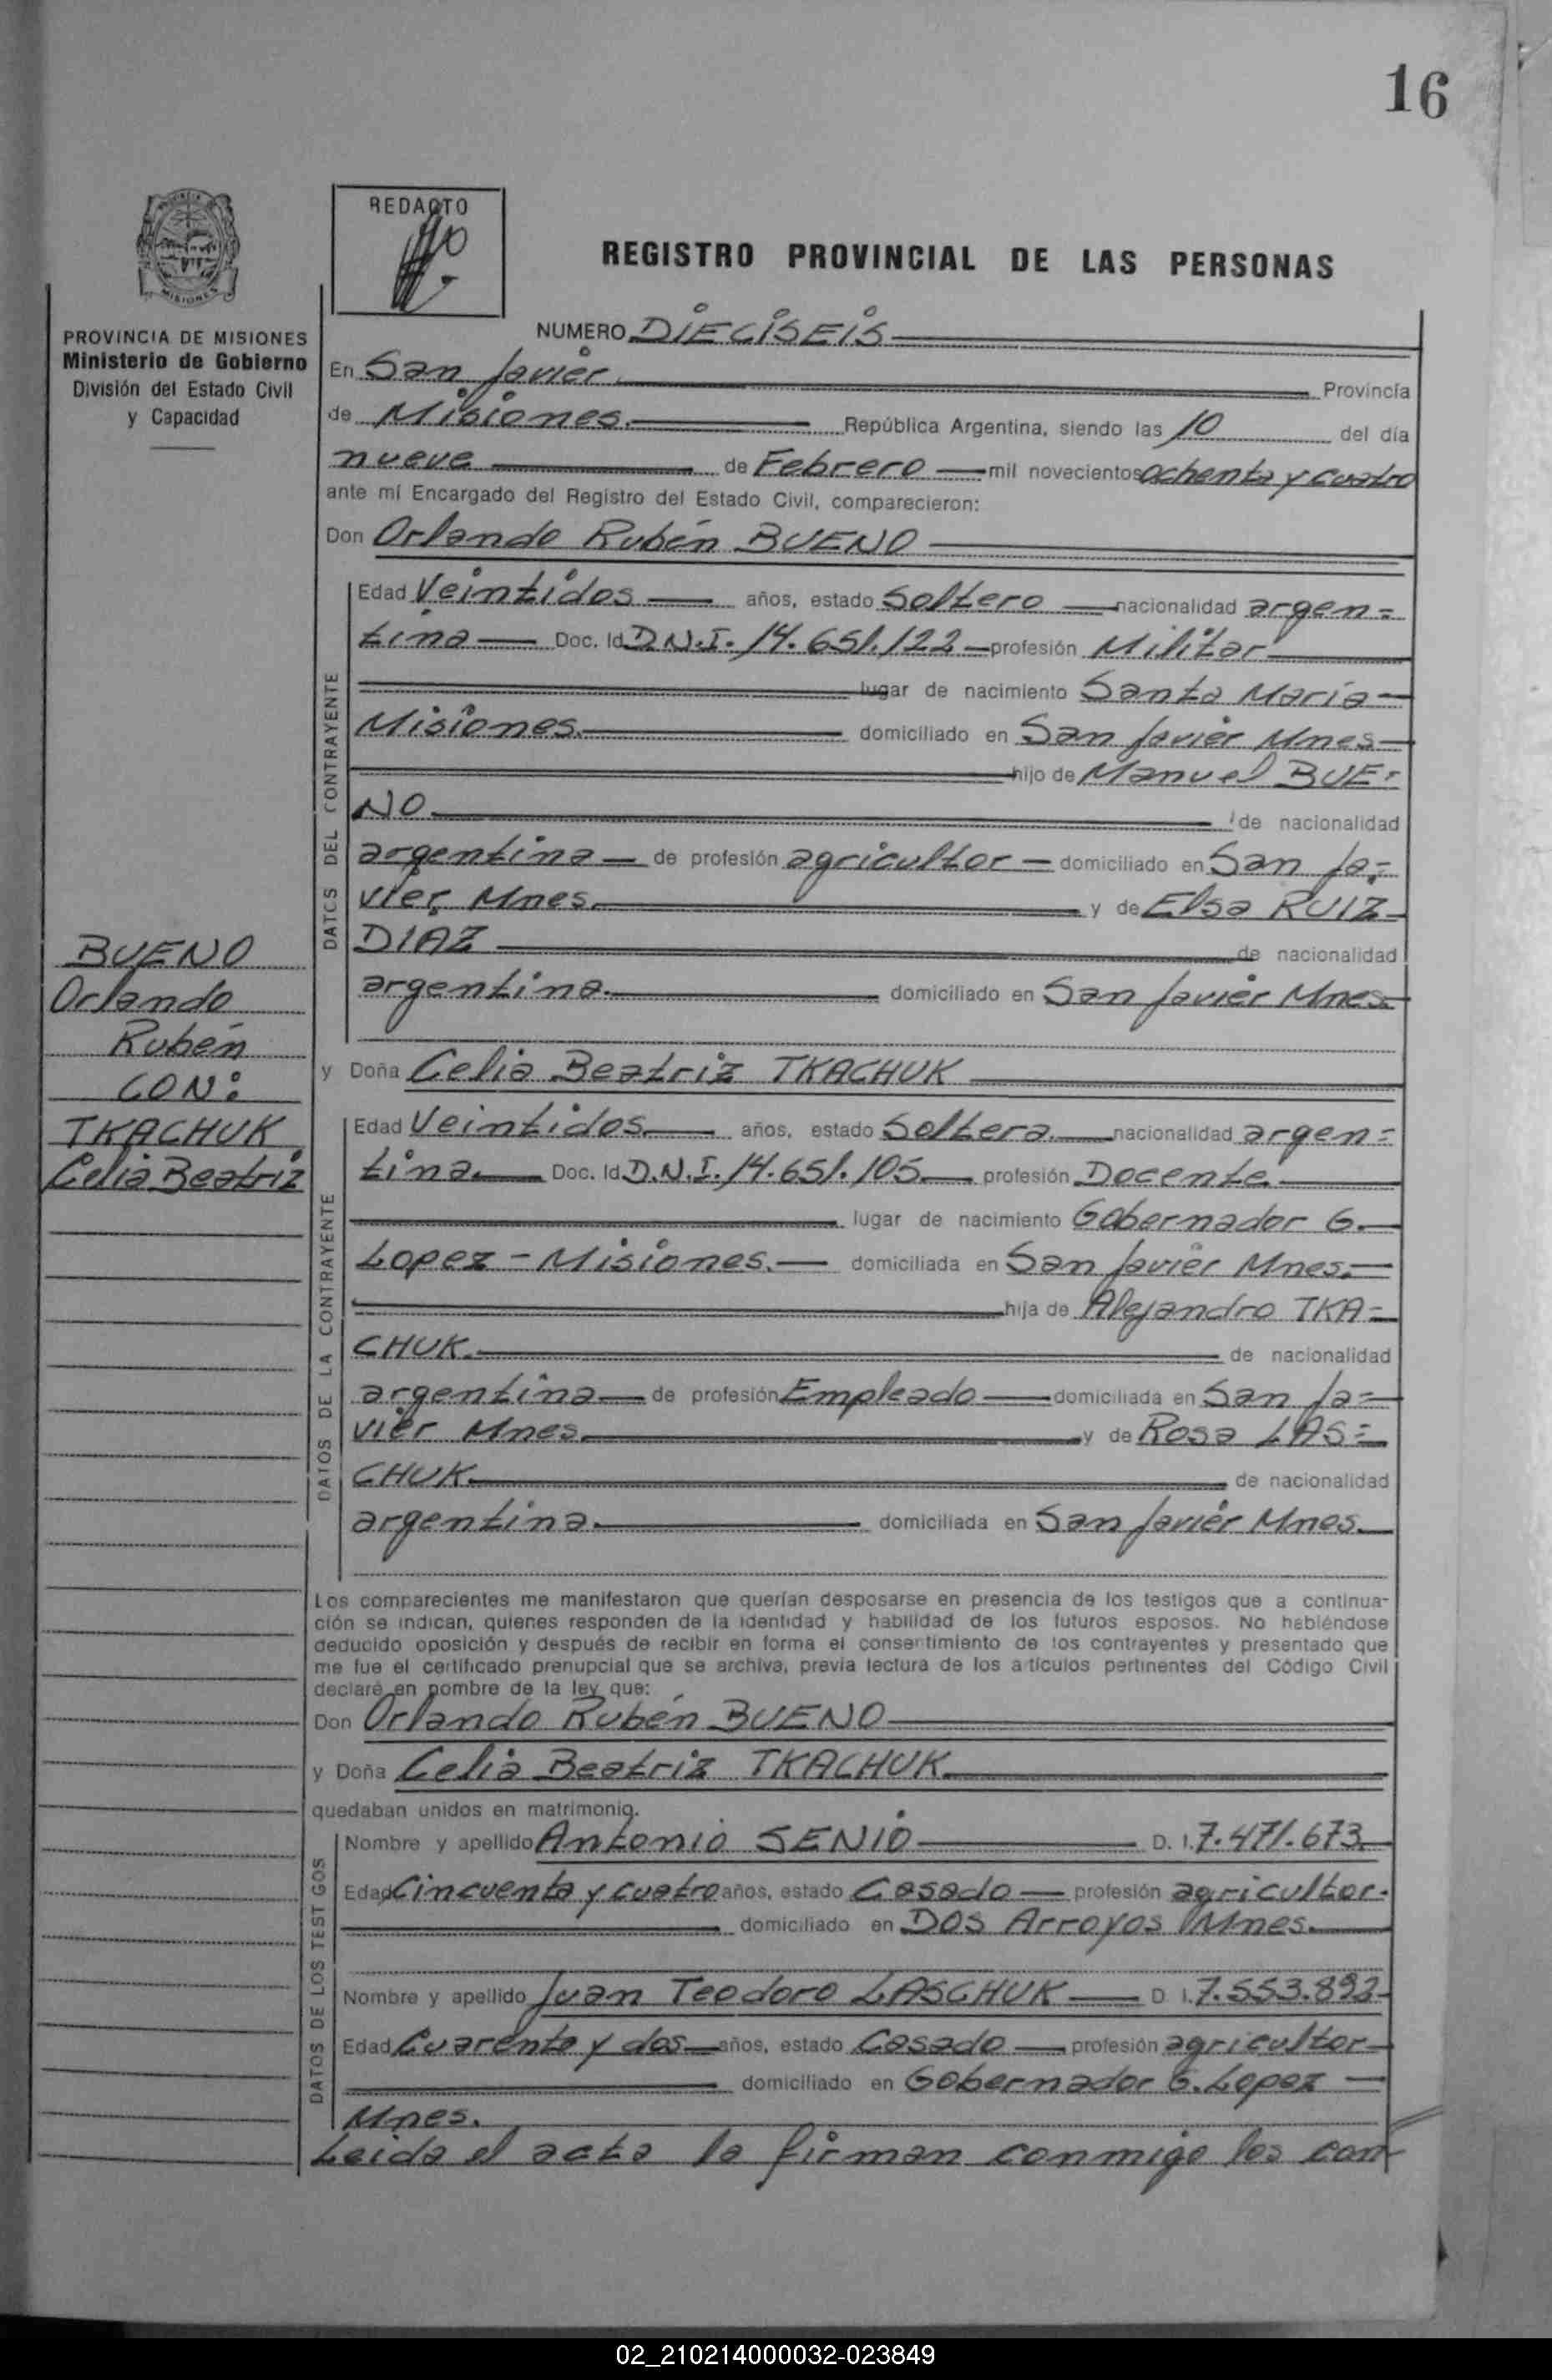 16
REDACTO
REGISTRO PROVINCIAL DE LAS PERSONAS
MISIONES
PROVINCIA DE MISIONES
Ministerio de Gobierno
División del Estado Civil
y Capacidad
NUMERO DIECISEIS
En San Javier Provincia
de Misiones. República Argentina, siendo las 10 del día
nueve de Febrero mil novecientos ochenta y cuatro
ante mí Encargado del Registro del Estado Civil, comparecieron:
Don Orlando Rubén BUENO
DATOS DEL CONTRAYENTE
Edad Veintidos años, estado Soltero nacionalidad argen=
tina Doc. Id D.N.I. 14.651.122 profesión Militar
lugar de nacimiento Santa María
Misiones. domiciliado en San Javier Mnes
hijo de Manuel BUE=
NO de nacionalidad
argentina de profesión agricultor domiciliado en San Ja=
vier Mnes. y de Elsa RUIZ
DIAZ de nacionalidad
argentina. domiciliado en San Javier Mnes.
BUENO
Orlando
Rubén
CON:
TKACHUK
Celia Beatriz
y Doña Celia Beatriz TKACHUK
DATOS DE LA CONTRAYENTE
Edad Veintidos años, estado Soltera nacionalidad argen=
tina. Doc. Id D.N.I. 14.651.105 profesión Docente
lugar de nacimiento Gobernador G.
Lopez - Misiones. domiciliada en San Javier Mnes.
hija de Alejandro TKA=
CHUK. de nacionalidad
argentina de profesión Empleado domiciliada en San Ja=
vier Mnes. y de Rosa LAS=
CHUK de nacionalidad
argentina. domiciliada en San Javier Mnes.
Los comparecientes me manifestaron que querían desposarse en presencia de los testigos que a continua-
ción se indican, quienes responden de la identidad y habilidad de los futuros esposos. No habiéndose
deducido oposición y después de recibir en forma el consentimiento de los contrayentes y presentado que
me fue el certificado prenupcial que se archiva, previa lectura de los a tículos pertinentes del Código Civil
declaré en nombre de la ley que:
Don Orlando Rubén BUENO
y Doña Celia Beatriz TKACHUK
quedaban unidos en matrimonio.
DATOS DE LOS TEST GOS
Nombre y apellido Antonio SENIO D. I. 7.471.673
Edad Cincuenta y cuatro años, estado Casado profesión agricultor.
domiciliado en DOS Arroyos Mnes.
Nombre y apellido Juan Teodoro LASCHUK D I. 7.553.892
Edad Cuarenta y dos años, estado Casado profesión agricultor
domiciliado en Gobernador G. Lopez
Mnes.
Leida el acta la firman conmigo los con
02_210214000032-023849